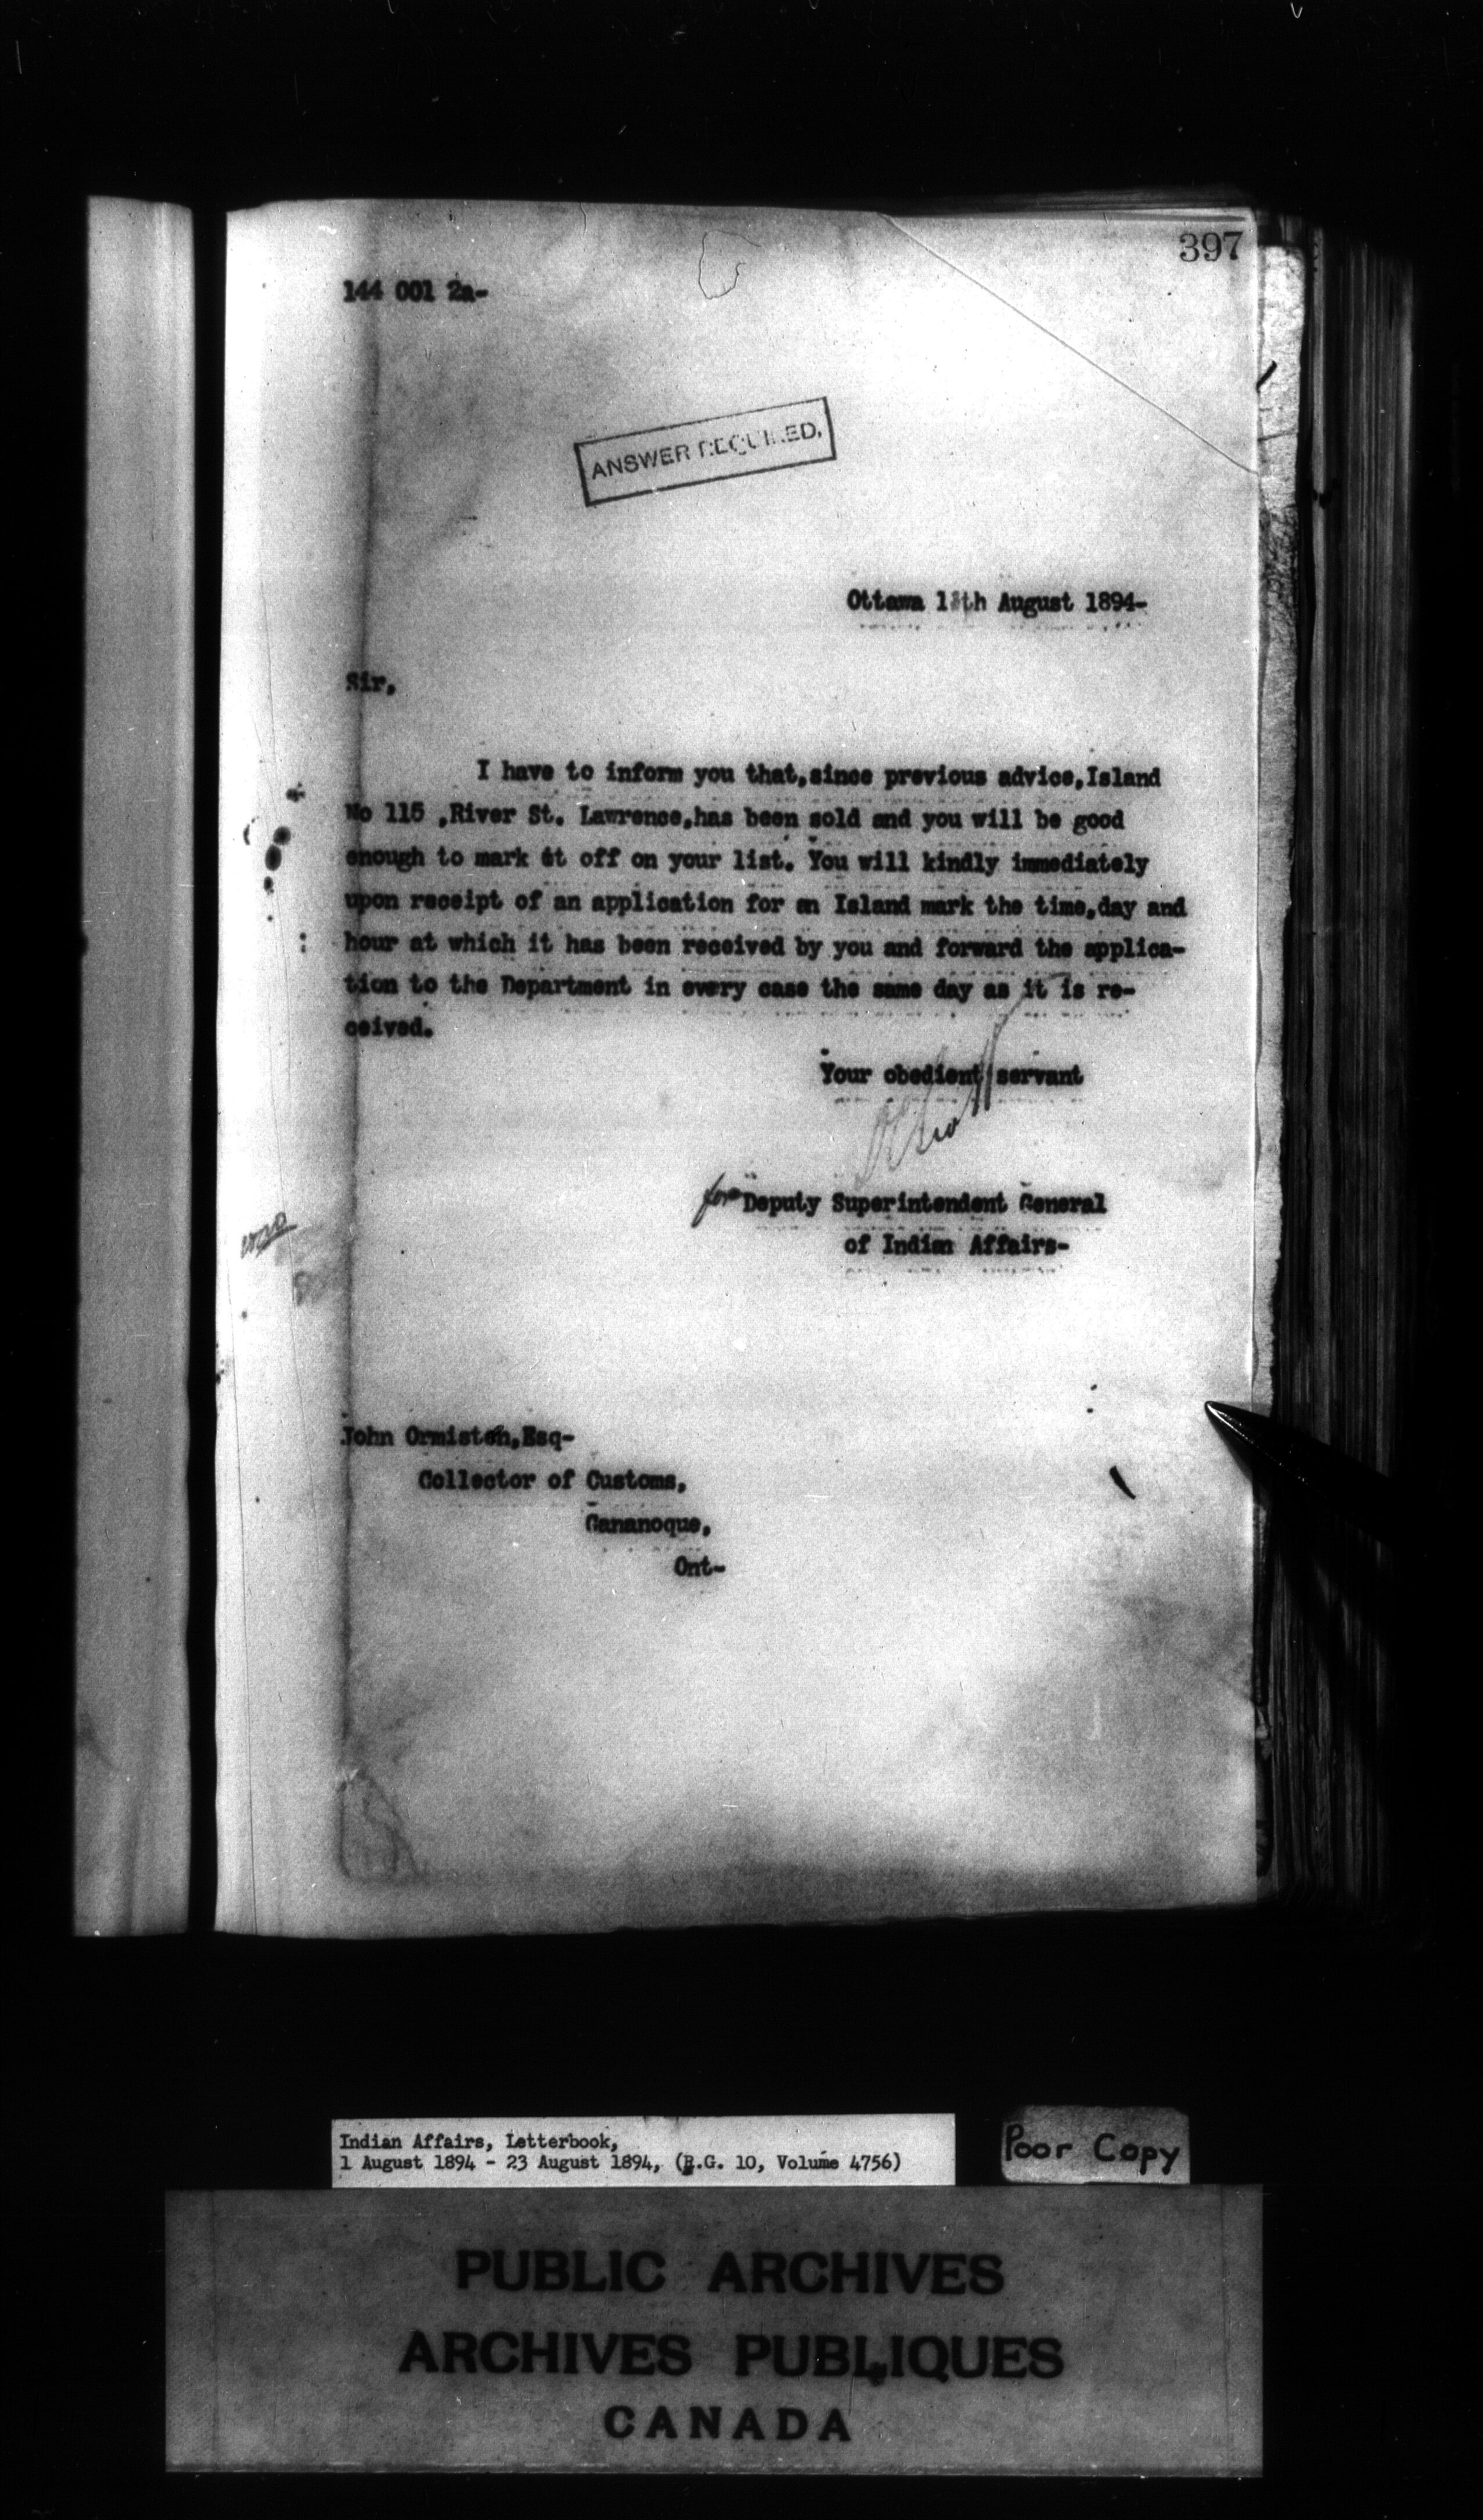 397
144 001 2a-
ANSWER REQUIRED.
Ottawa August 1894-
Sir,
I have to inform you that,since previous advice,Island
No 115 ,River St. Lawrence,has been sold and you will be good
enough to mark it off on your list. You will kindly immediately
upon receipt of an application for an Island mark the time,day and
hour at which it has been received by you and forward the applica-
tion to the Department in every case the same day as it is re-
ceived.
Your obedient servant
for Deputy Superintendent General
of Indian Affairs-
John Ormiston,Esq-
Collector of Customs,
Gananoque,
Ont-
Indian Affairs, Letterbook,
1 August 1894 - 23 August 1894, (R.G. 10, Volume 4756)
Poor Copy
PUBLIC ARCHIVES
ARCHIVES PUBLIQUES
CANADA